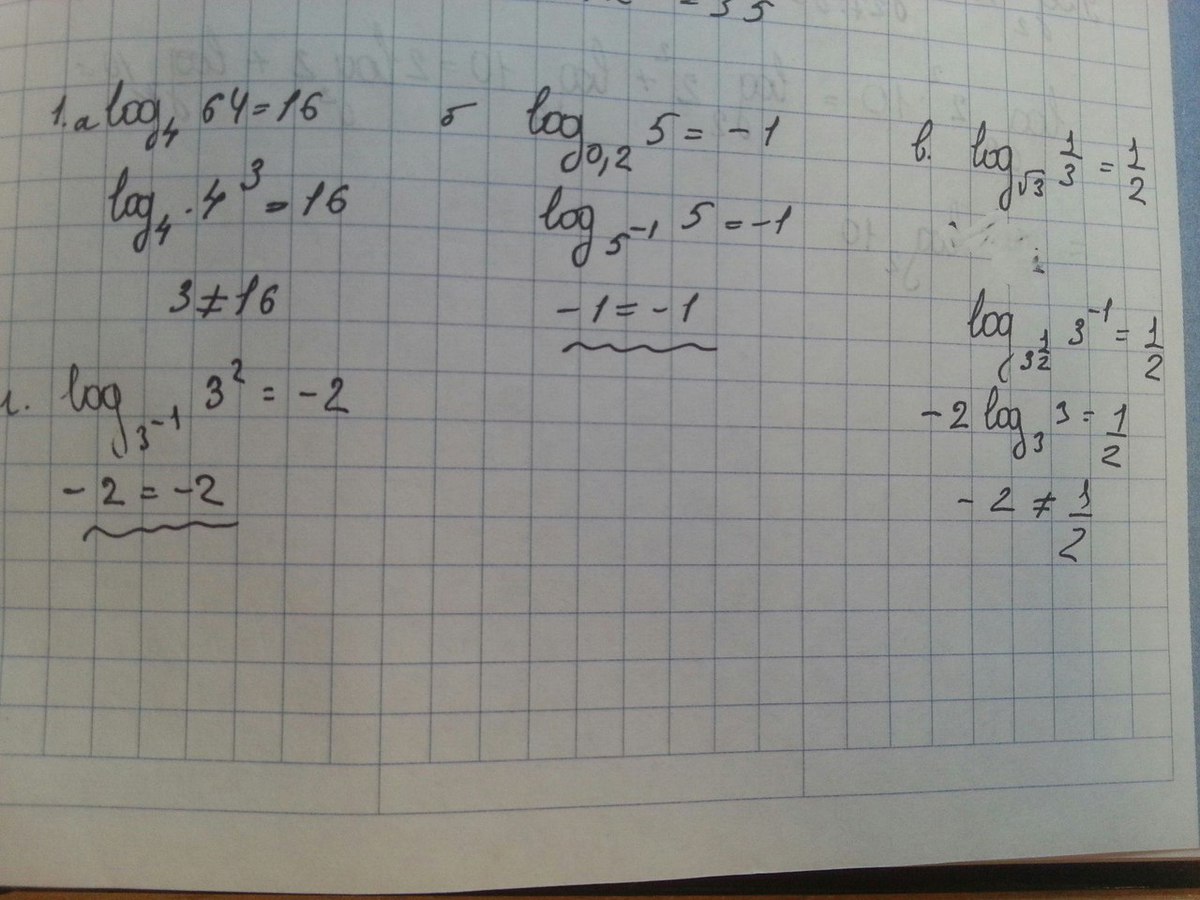 1. а log₄ 64 = 16
log₄ · 4³ = 16
3 ≠ 16
б log₀,₂ 5 = -1
log₅₋₁ 5 = -1
-1 = -1
в. log_√3 1/3 = 1/2
log_3^(1/2) 3⁻¹ = 1/2
-2 log₃ 3 = 1/2
-2 ≠ 1/2
г. log_3⁻¹ 3² = -2
-2 = -2